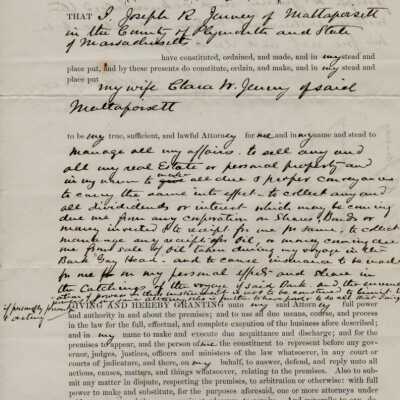 THAT I, Joseph R. Jenney of Mattapoisett
in the County of Plymouth and State
of Massachusetts
have constituted, ordained, and made, and in my stead and
place put, and by these presents do constitute, ordain, and make, and in my stead and
place put
my wife Clara W. Jenney of said
Mattapoisett
to be my true, sufficient, and lawful Attorney for me and in my name and stead to
manage all my affairs. to sell any and
all my real Estate or personal property and
in my name to make all due & proper conveyances
to carry the same into effect - to collect any and
all dividends or interest which may be coming
due me from any corporation on Shares, Bonds or
money invested & to receipt for me for same, to collect
any receipts for Oil, or money coming due
me from sale of Oil taken during my voyage in the
Bark Gay Head. and to cause insurance to be made
for me on my personal effects and share in
the Catchings of the voyage of said Bark and
GIVING AND HEREBY GRANTING unto my said Attorney full power
and authority in and about the premises; and to use all due means, course, and process
in the law for the full, effectual, and complete execution of the business afore described; and
in my name to make and execute due acquittance and discharge; and for the
premises to appear, and the person of me the constituent to represent before any gov-
ernor, judges, justices, officers and ministers of the law whatsoever, in any court or
courts of judicature, and there, on my behalf, to answer, defend, and reply unto all
actions, causes, matters, and things whatsoever, relating to the premises. Also to sub-
mit any matter in dispute, respecting the premises, to arbitration or otherwise: with full
power to make and substitute, for the purposes aforesaid, one or more attorneys under